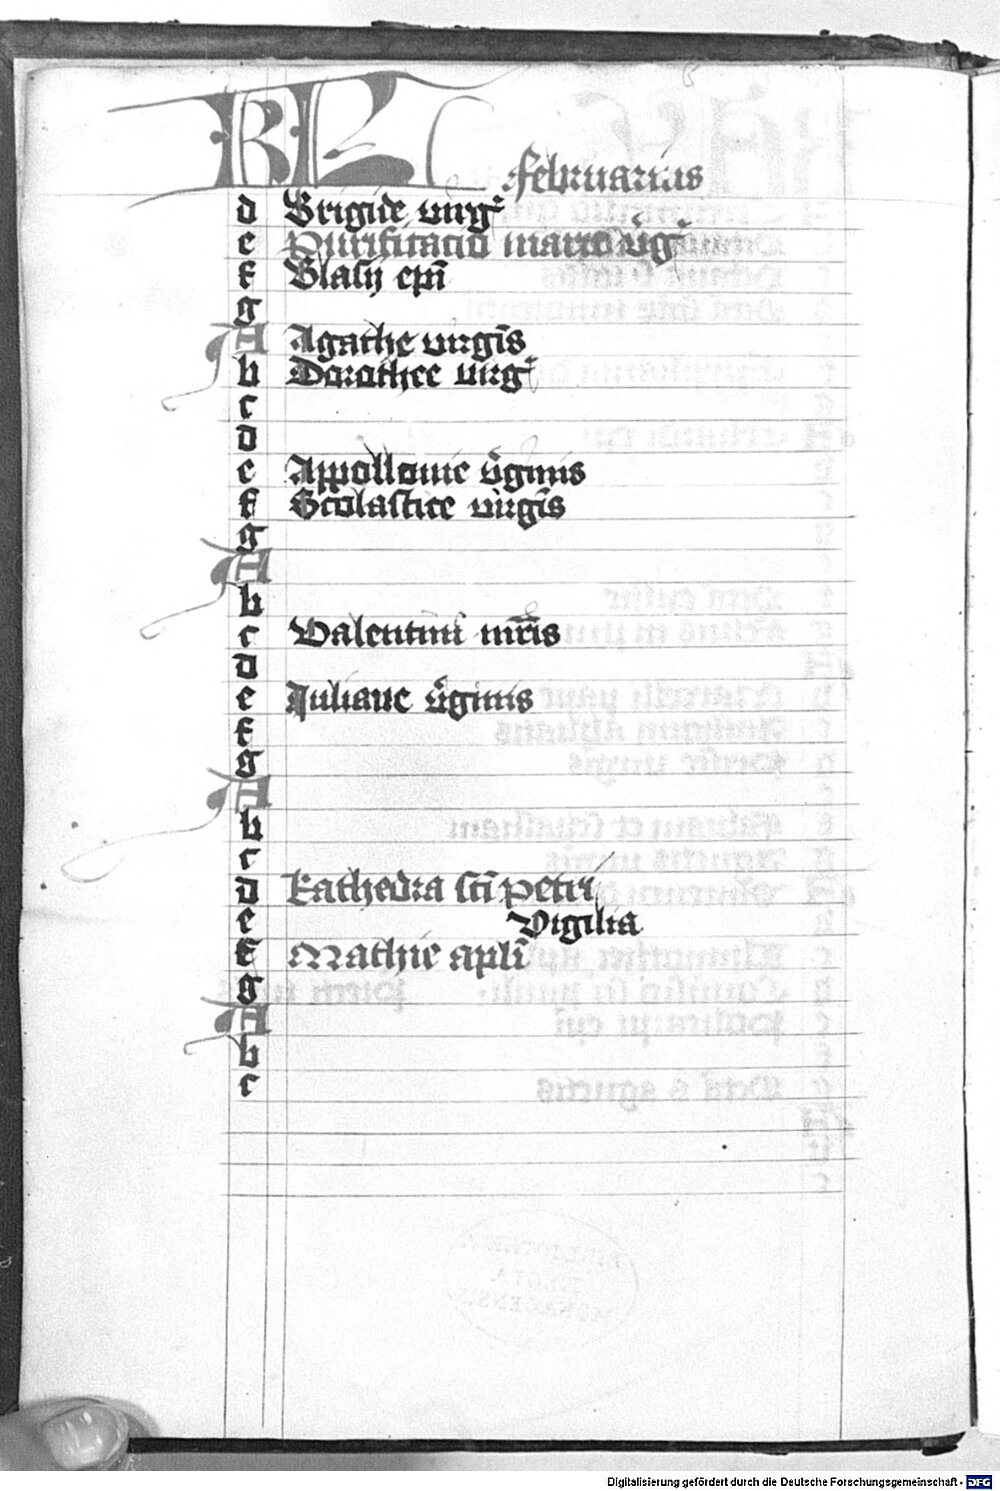 KL
februarius
d Brigide virg
e Purificatio marie v̄g
f Blasij epī
g
A Agathe virgīs
b Dorothee virg
c
d
e Appollonie v̄ginis
f Scolastice virgīs
g
A
b
c Valentini mr̄is
d
e Juliane v̄ginis
f
g
A
b
c
d Kathedra sc̄i petri
e Vigilia
f Mathie apl̄i
g
A
b
c
BIBLIOTHECA
REGIA
MONACENSIS
Digitalisierung gefördert durch die Deutsche Forschungsgemeinschaft - DFG